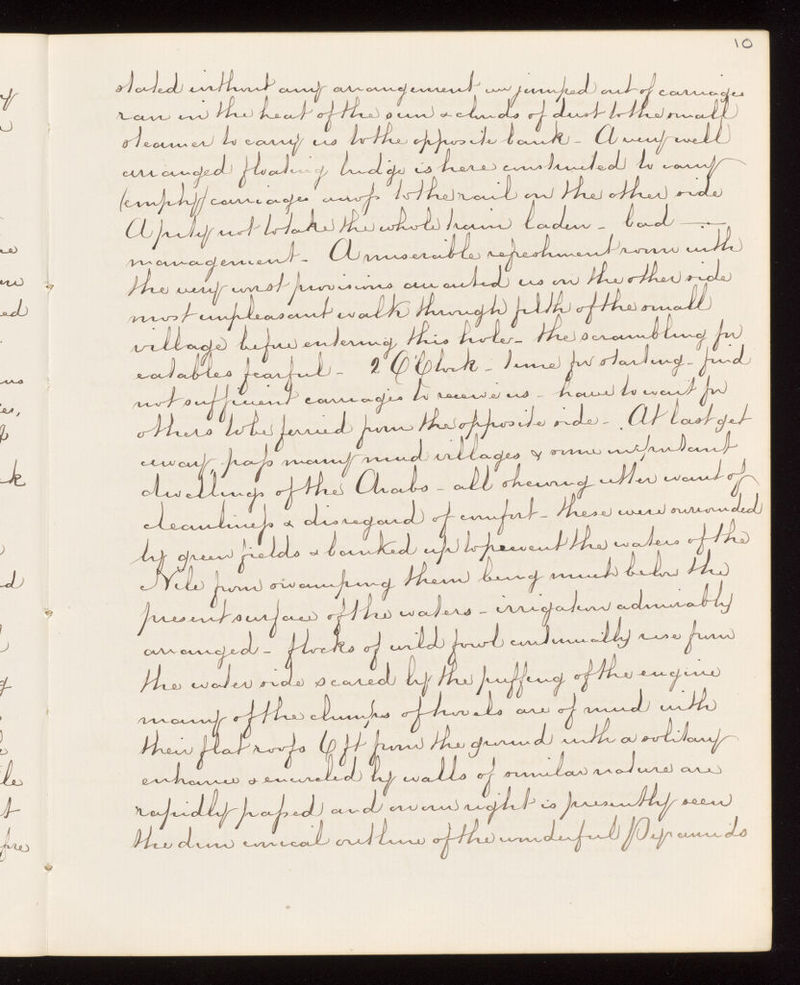 10
stated without any arrangement we jumped out of carriages
ran in the heat of the sun & clouds of dust to the small
steamer to carry us to the opposite bank - A very well
arranged floating bridge is here constructed to carry
(empty) carriages across to the rail on the other side
A pity not to take the whole train laden - bad —
management - A miserable refreshment room with
the very worst provisions awaited us on the other side
most unpleasant walk through filth of the small
village before entering this hole - the scrambling for
eatables fearful - 2 O'Clock - time for starting - find
not sufficient carriages to receive us - have to wait for
others to be ferried from the opposite side - At last get
away, pass many mud villages & some
dwellings of the Arabs - all shewing utter want of
cleanliness & disregard of comfort - these were surrounded
by green fields & banked up to prevent the waters of the
Nile from swamping them being much below the
present surface of the waters - irrigation admirably
arranged - flocks of wild fowl continually rise from
the water side scared by the puffing of the engine
many of the clumps of hovels are of mud with
their flat roofs 6 ft from the ground with a solitary
entrance & encircled by walls of similar nature are
rapidly passed and on our right is presently seen
the dim conical outline of the wonderful Pyramids